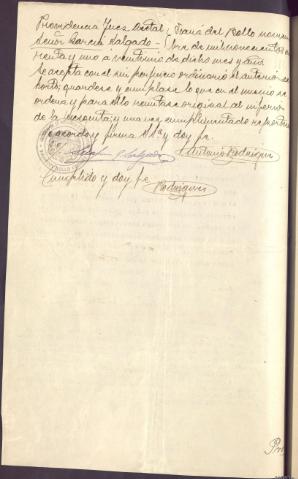 Providencia Juez Mctal - Viana del Bollo nov
Señor García Salgado - de mil novecientos
renta y uno a veintiuno de dicho mes y año
Se acepta con el sin perjuicio ordinario el anterior
guardese y cumplase lo que en el mismo se
ordena y para ello remitase original al inferior
de la Mezquita; y una vez cumplimentado
lo acordo y firma Sª y doy fe.
Salgado Antonio Rodriguez
Cumplido y doy fe
Rodriguez